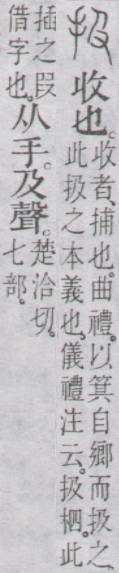 扱 收也。收者、捕也。曲禮。以箕自鄉而扱之。
此扱之本義也。儀禮注云。扱柶。此
插之叚
借字也。从手。及聲。楚洽切。
七部。